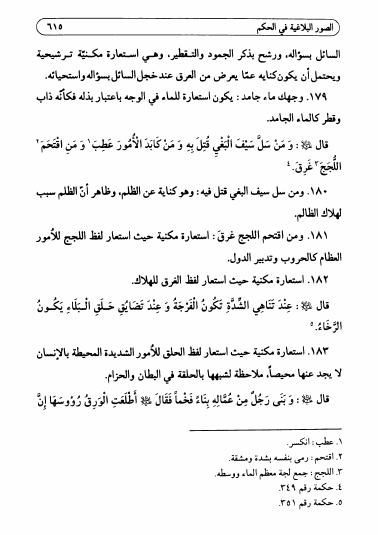 الصور البلاغية في الحكم ٦١٥
السائل بسؤاله، ورشح بذكر الجمود والتقطير، وهي استعارة مكنيّة ترشيحية
ويحتمل أن يكون كنايه عمّا يعرض من العرق عند خجل السائل بسؤاله واستحيائه.
١٧٩. وجهك ماء جامد: يكون استعارة للماء في الوجه باعتبار بذله فكأنّه ذاب
وقطر كالماء الجامد.
قال ﷺ: وَ مَنْ سَلَّ سَيْفَ الْبَغْيِ قُتِلَ بِهِ وَ مَنْ كَابَدَ الْأُمُورَ عَطِبَ١ وَ مَنِ اقْتَحَمَ٢
اللُّجَجَ٣ غَرِقَ.٤
١٨٠. ومن سل سيف البغي قتل فيه: وهو كناية عن الظلم، وظاهر أنّ الظلم سبب
لهلاك الظالم.
١٨١. ومن اقتحم اللجج غرق: استعارة مكنية حيث استعار لفظ اللجج للأمور
العظام كالحروب وتدبير الدول.
١٨٢. استعارة مكنية حيث استعار لفظ الغرق للهلاك.
قال ﷺ: عِنْدَ تَنَاهِي الشِّدَّةِ تَكُونُ الْفَرْجَةُ وَ عِنْدَ تَضَايُقِ حَلَقِ الْبَلَاءِ يَكُونُ
الرَّخَاءُ.٥
١٨٣. استعارة مكنية حيث استعار لفظ الحلق للأمور الشديدة المحيطة بالإنسان
لا يجد عنها محيصاً، ملاحظة لشبهها بالحلقة في البطان والحزام.
قال ﷺ: وَ بَنَى رَجُلٌ مِنْ عُمَّالِهِ بِنَاءً فَخْماً فَقَالَ ﷺ أَطْلَعَتِ الْوَرِقُ رُؤُوسَهَا إِنَّ
١. عطب: انكسر.
٢. اقتحم: رمى بنفسه بشدة ومشقة.
٣. اللجج: جمع لجة معظم الماء ووسطه.
٤. حكمة رقم ٣٤٩.
٥. حكمة رقم ٣٥١.